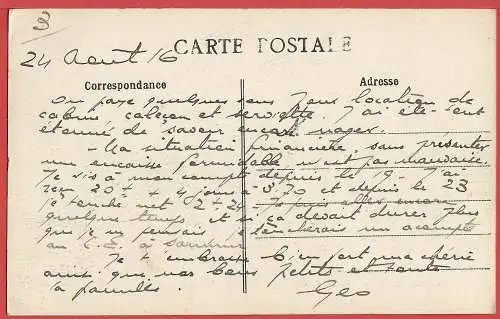 24 Août 16
CARTE POSTALE
Correspondance
Adresse
On paye quelques sous pour location de
cabine caleçon et serviette. J'ai été
étonné de savoir encore nager.
- Ma situation financière, sans présenter
une encaisse formidable n'est pas mauvaise.
Je vis à mon compte depuis le 19 - J'ai
reçu 20f + 4 jours à 3.70 et depuis le 23
je touche net 2f24. Je puis aller encore
quelque temps et si ça devait durer plus
que je ne pensais je un acompte
au C.E. à
Je t'embrasse bien fort ma chérie
ainsi que nos bons petits et toute
la famille.
Geo